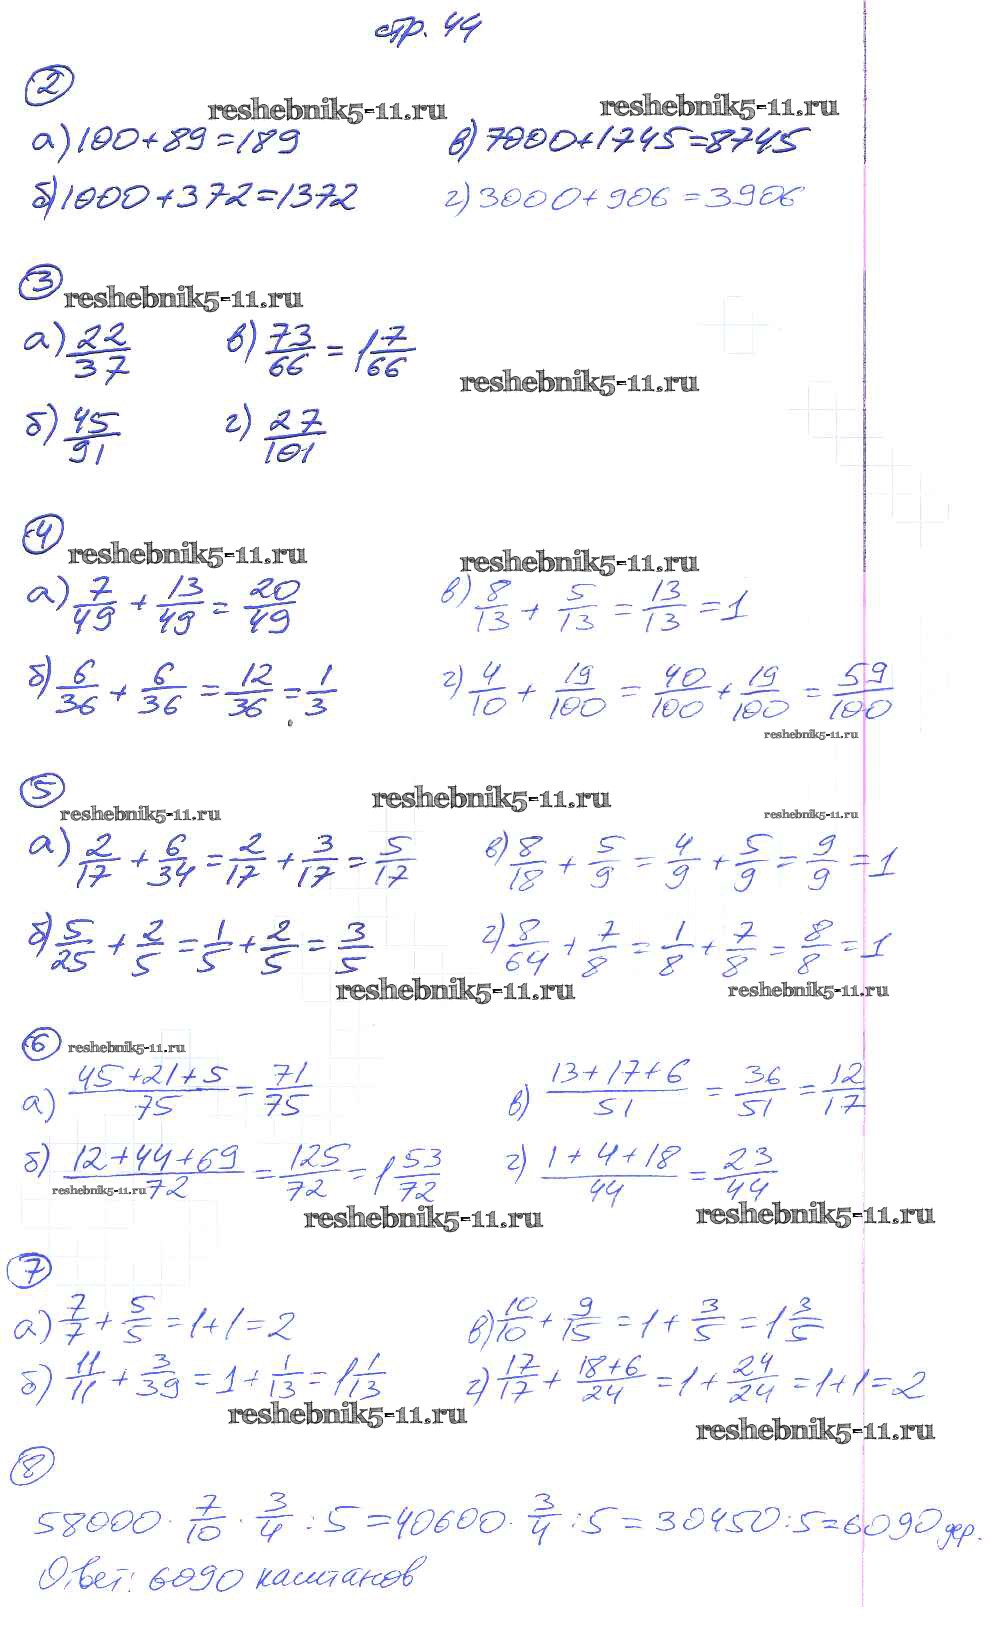 стр. 44
2
reshebnik5-11.ru reshebnik5-11.ru
а) 100+89=189 в) 7000+1745=8745
б) 1000+372=1372 г) 3000+906=3906
3 reshebnik5-11.ru
а) 22/37 в) 73/66 = 1 7/66
reshebnik5-11.ru
б) 45/91 г) 27/101
4 reshebnik5-11.ru reshebnik5-11.ru
а) 7/49 + 13/49 = 20/49 в) 8/13 + 5/13 = 13/13 = 1
б) 6/36 + 6/36 = 12/36 = 1/3 г) 4/10 + 19/100 = 40/100 + 19/100 = 59/100
reshebnik5-11.ru
5 reshebnik5-11.ru reshebnik5-11.ru reshebnik5-11.ru
а) 2/17 + 6/34 = 2/17 + 3/17 = 5/17 в) 8/18 + 5/9 = 4/9 + 5/9 = 9/9 = 1
б) 5/25 + 2/5 = 1/5 + 2/5 = 3/5 г) 8/64 + 7/8 = 1/8 + 7/8 = 8/8 = 1
reshebnik5-11.ru reshebnik5-11.ru
6 reshebnik5-11.ru
а) 45+21+5/75 = 71/75 в) 13+17+6/51 = 36/51 = 12/17
б) 12+44+69/72 = 125/72 = 1 53/72 г) 1+4+18/44 = 23/44
reshebnik5-11.ru reshebnik5-11.ru reshebnik5-11.ru
7
а) 7/7 + 5/5 = 1+1=2 в) 10/10 + 9/15 = 1 + 3/5 = 1 3/5
б) 11/11 + 3/39 = 1 + 1/13 = 1 1/13 г) 17/17 + 18+6/24 = 1 + 24/24 = 1+1=2
reshebnik5-11.ru reshebnik5-11.ru
8
58000 · 7/10 · 3/4 : 5 = 40600 · 3/4 : 5 = 30450 : 5 = 6090 дер.
Ответ: 6090 каштанов